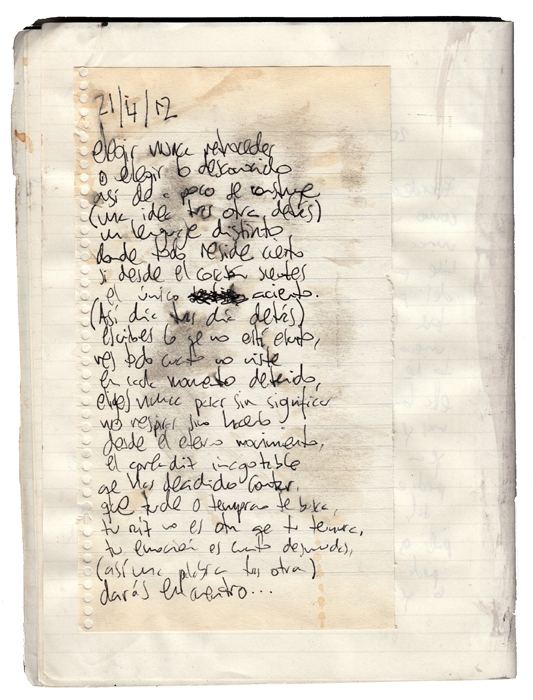 21/4/12
elegir nunca retroceder
o elegir lo desconocido
así de a poco se construye
(una idea tras otra detrás)
un lenguaje distinto
donde todo reside cierto
si desde el corazón sientes
el único acierto.
(Así día tras día detrás)
escribes lo que no está escrito,
ves todo cuanto no viste
en cada momento detenido,
eliges nunca pasar sin significar
no respirar sino hacerlo
desde el eterno movimiento,
el aprendiz inagotable
que has decidido contar,
que tarde o temprano te busca,
tu raíz no es otra que tu ternura,
tu emoción es cuanto desnudas,
(así una palabra tras otra)
darás encuentro...